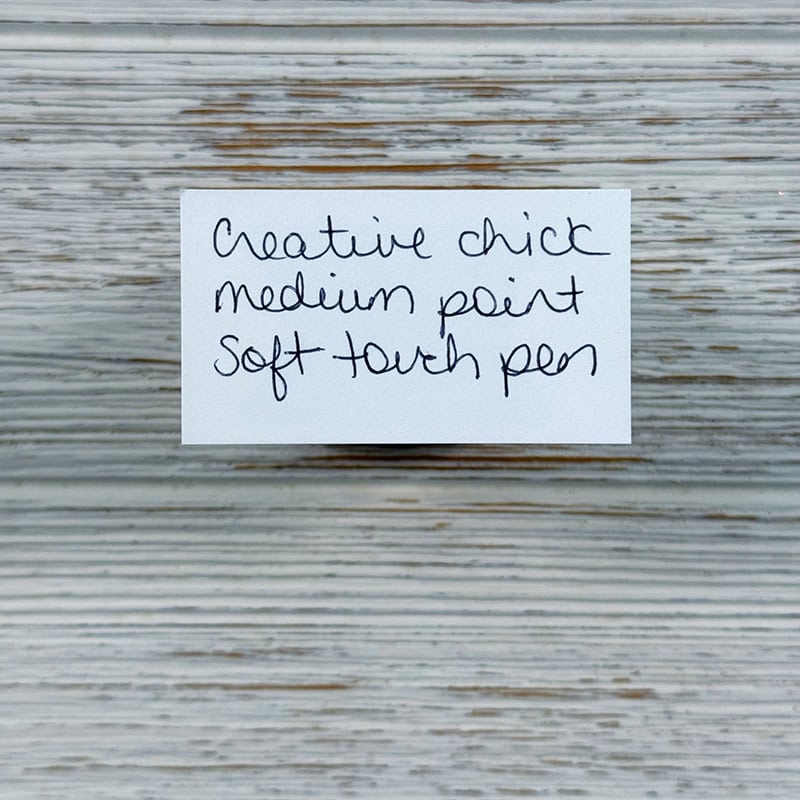 Creative chick
medium point
soft touch pen